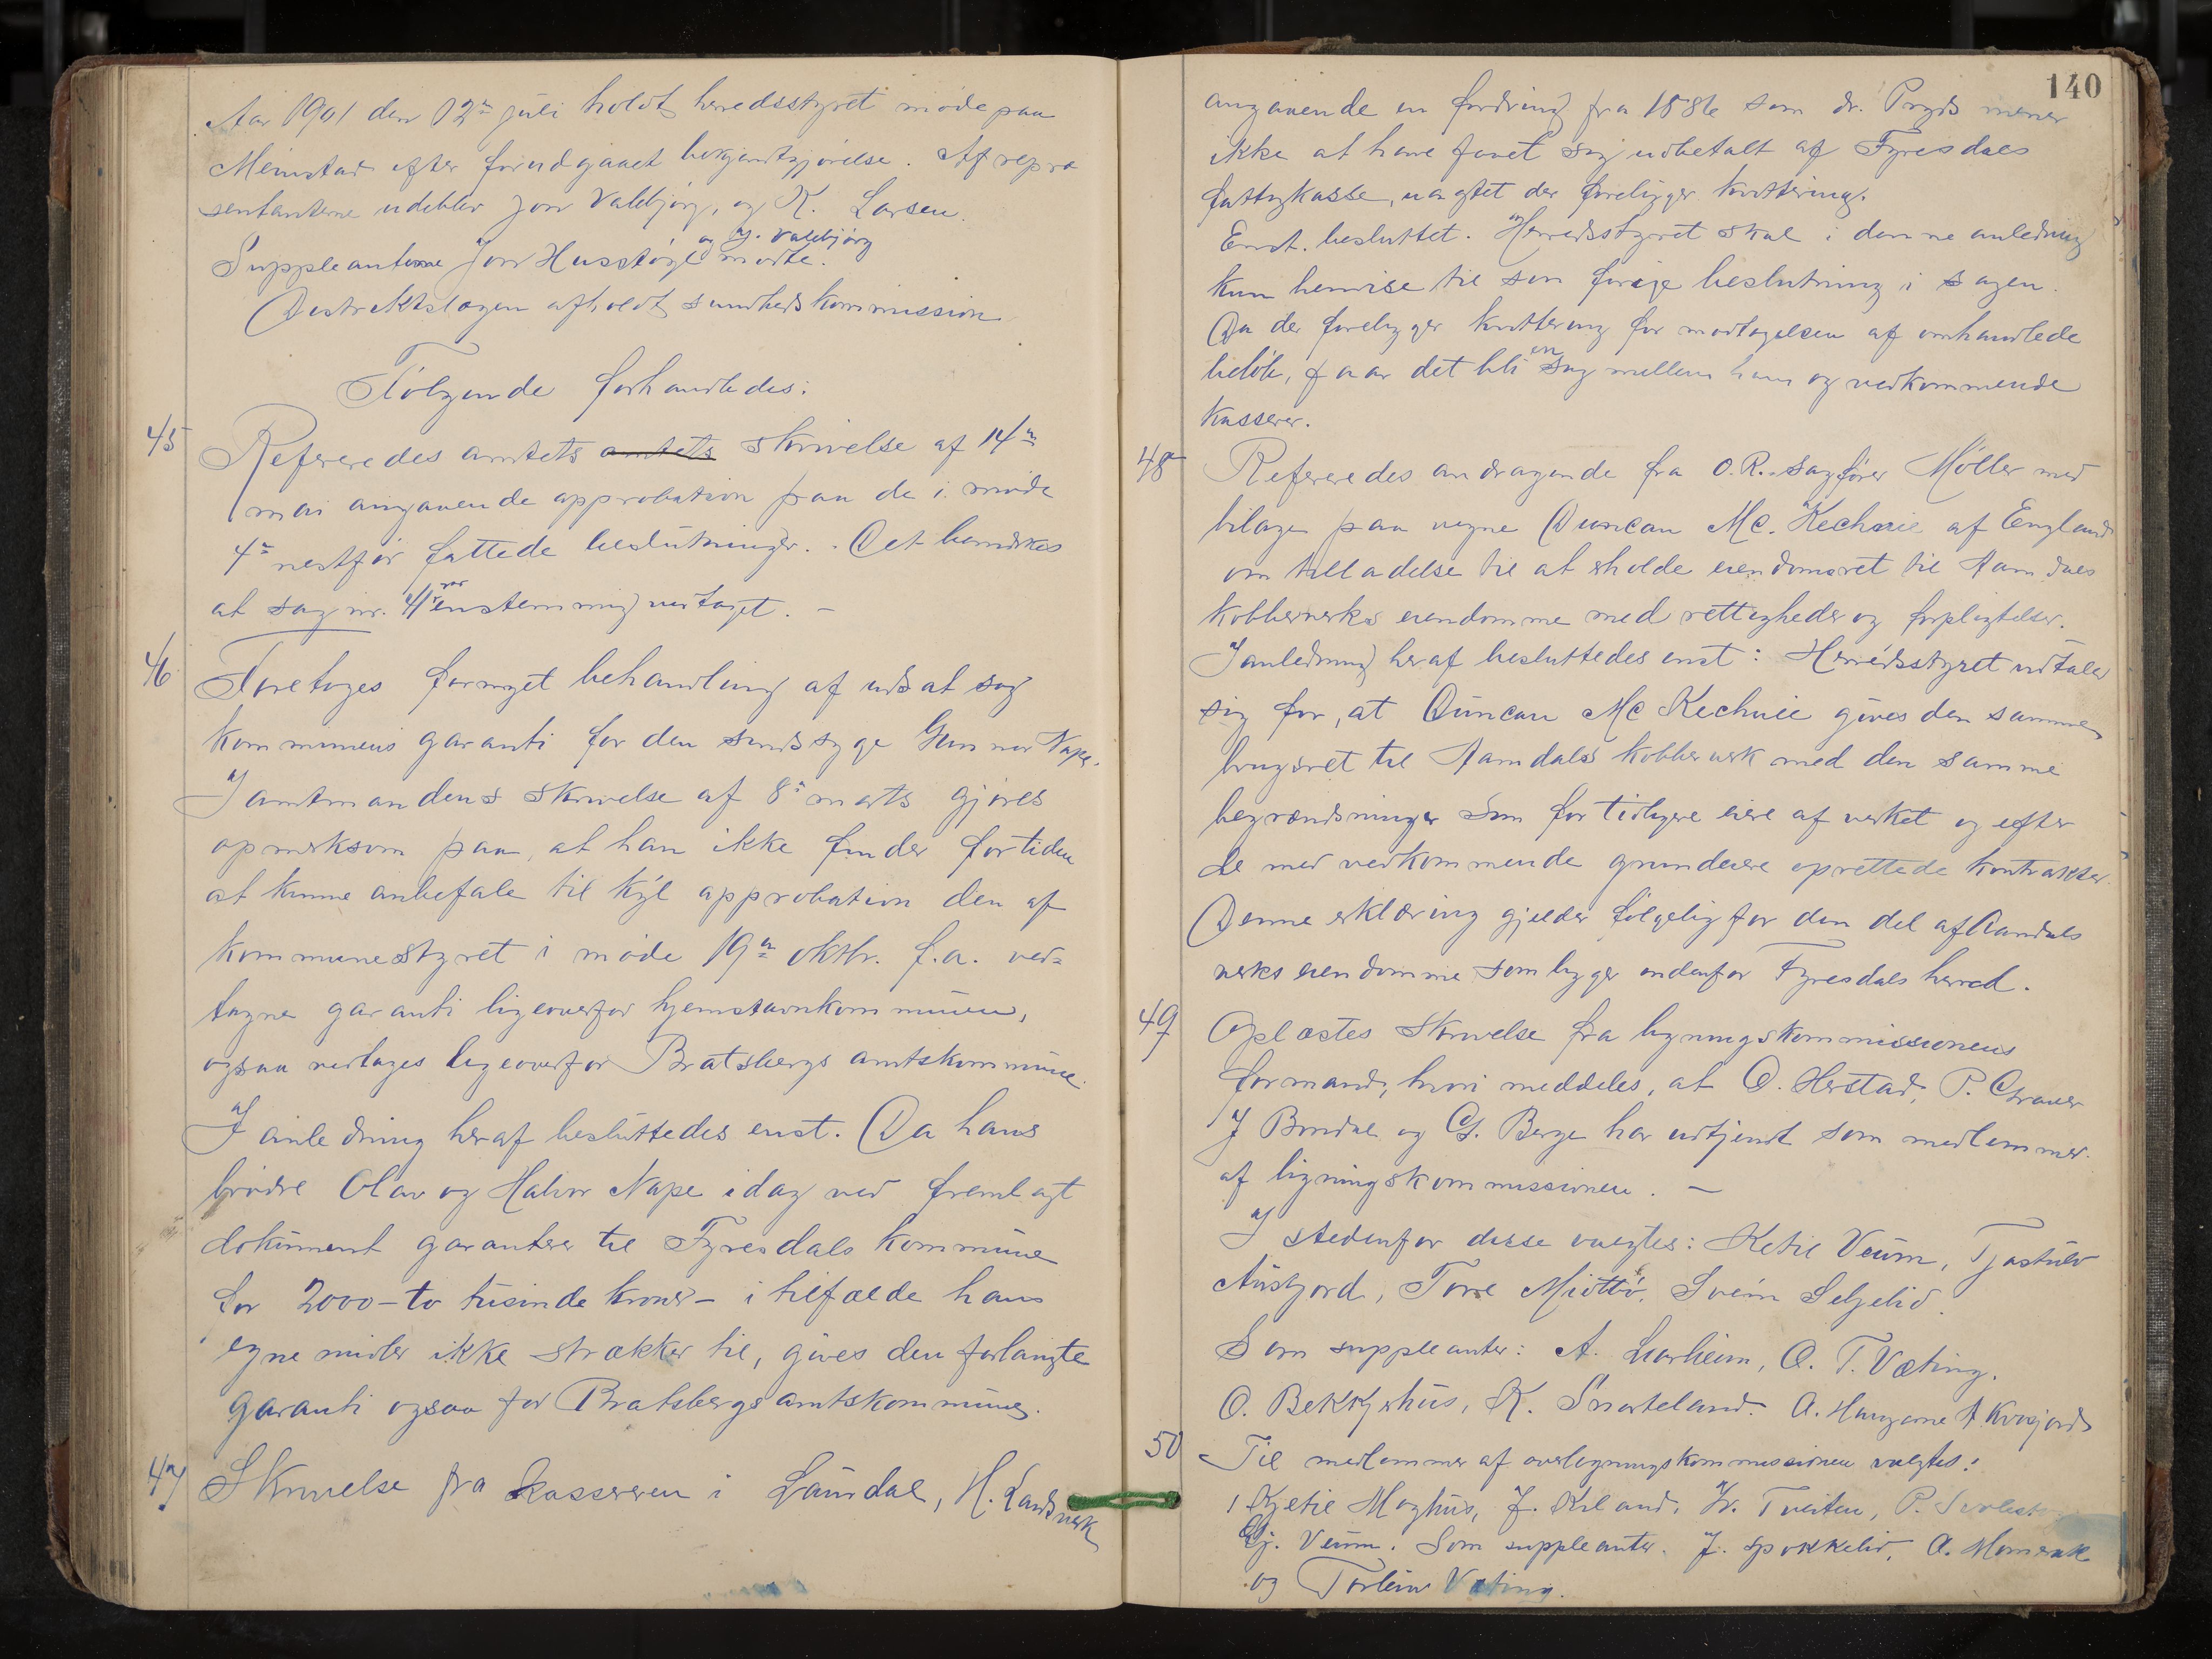 Aar 1901 den 12te juli holdt herredsstyret møde paa
Meinstad efter forudgaaet bekjendtgjørelse. Af repræ
sentanterne udeblev Jon Valebjørg, og K. Larsen.
og J. Valebjørg
Suppleanterne Jon Husstøyl mødte.
Distriktslægen afholdt sundhedskommission
Følgende forhandledes:
45 Refereredes amtets amtets skrivelse af 14de
mai angaaende approbation paa de i møde
4de nestfør fattede beslutninger. Det bemerkes
at sag nr. 41 var enstemmig vedtaget. –
46 Foretoges fornyet behandling af udsat sag
kommunens garanti for den sindssyge Gunnar Nape.
I amtmandens skrivelse af 8de marts gjøres
opmerksom paa, at han ikke finder for tiden
at kunne anbefale til kgl approbation den af
kommunestyret i møde 19de oktbr. f.a. ved-
tagne garanti ligeoverfor hjemstavnkommunen,
ogsaa vedtages ligeoverfor Bratsbergs amtskommune.
I anledning heraf besluttedes enst. Da hans
brødre Olav og Halvor Nape idag ved fremlagt
dokument garanterer til Fyresdals kommune
for 2000 – to tusinde kroner – i tilfælde hans
egne midler ikke strækker til, gives den forlangte
garanti ogsaa for Bratsbergs amtskommune.
47 Skrivelse fra kassereren i Laurdal, H. Landsverk
140
angaaende en fordring fra 1886 som dr. mener
ikke at have faaet sig udbetalt af Fyresdals
fattigkasse, uagtet der foreligger kvittering.
Enst. besluttet. Herredsstyret skal i denne anledning
kun henvise til son forrige beslutning i sagen.
Da der foreligger kvittering for modtagelsen af omhandlede
beløb, faar det bli en sag mellem ham og vedkommende
kasserer.
48 Refereredes andragende fra O.R.sagfører Møller med
bilage paa vegne Duncan Mc. Kechnie af England
om tilladelse til at erholde eiendomsret til Aamdals
kobberverks eiendomme med rettigheder og forpligtelser.
I anledning heraf besluttedes enst: Herredsstyret udtaler
sig for, at Duncan Mc Kechnie gives den samme
brugsret til Aamdals kobberverk med den samme
begrændsninger som for tidligere eiere af verket og efter
de med vedkommende grundeiere oprettede kontrakter.
Denne erklæring gjælder følgelig for den del af Aamdals
verks eiendomme som ligger indenfor Fyresdals herred.
49 Oplæstes skrivelse fra ligningskommissionens
formand, hvori meddeles, at O. Herstad, P. Græver
J Brudal og G. Berge har udtjendt som medlemmer
af ligningskommissionen. –
I stedenfor disse valgtes: Ketil Veum, Tjostulv
Austgord, Torre Midtbø. Svein Seljelid.
Som suppleanter: A. Liorheim, O. T. Væting.
O. Bekkjerhus, K. Snarteland. A. Haugane A Kvisjord
50 Til medlemmer af overligningskommissionen valgtes:
Kjetil Moghus, J. Kiland, H. Tveiten, P.
Gj. Veum. Som suppleanter. J. Spokkelid, A. Momrak
og Torleiv Væting.